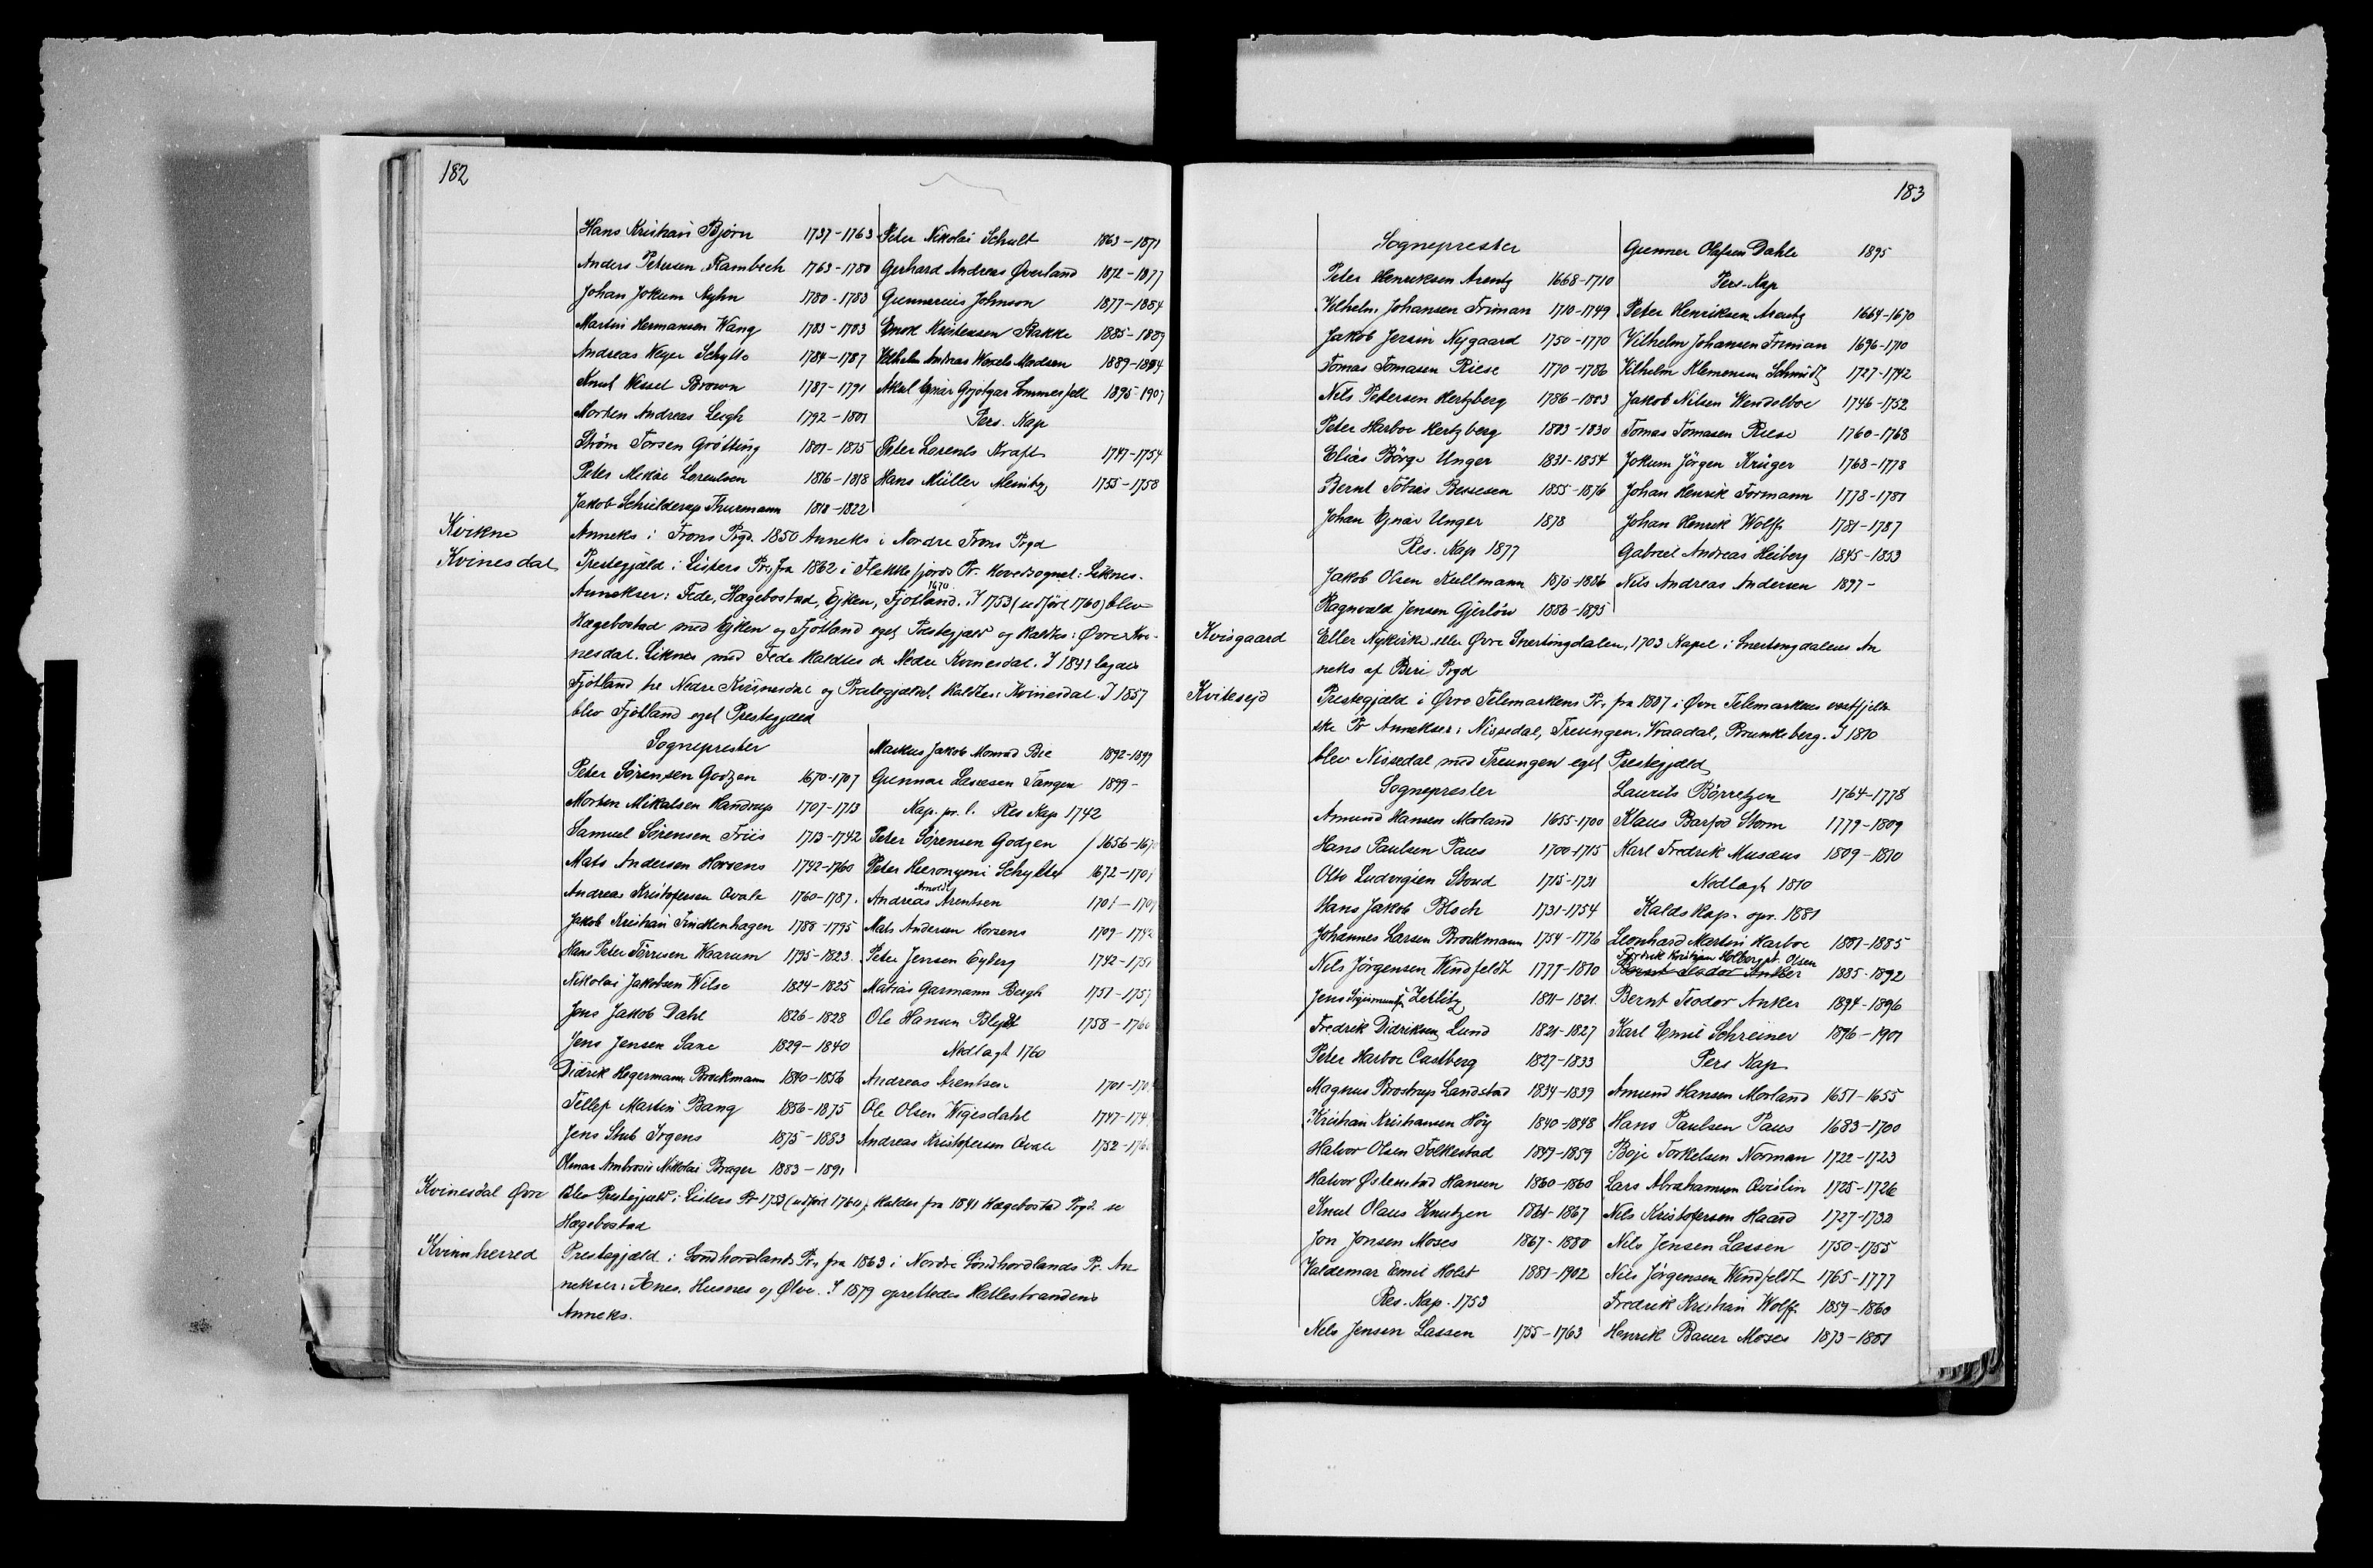 182
Hans Kristian Bjørn 1737-1763
Anders Petersen Rambech 1763-1780
Johan Jokum Nyhn 1780-1783
Martin Hermansen Wang 1783-1783
Andreas Weyer Schytte 1784-1787
Knut Wessel Brown 1787-1791
Morten Andreas Leigh 1792-1801
Strøm Torsen Grøtting 1801-1815
Peter Mikal Lorentsen 1816-1818
Jakob Schielderup Thurmann 1818-1822
Peter Nikolai Schult 1863-1871
Gerhard Andreas Øverland 1872-1877
Gunnerius Johnson 1877-1884
Enok Kristensen Bakke 1885-1889
Vilhelm Andreas Wexels Madsen 1889-1894
Aksel Ejnar Grjotgar Sommerfelt 1895-1907
Pers. Kap
Peter Lorents Kraft 1747-1754
Hans Müller Meinitz 1755-1758
Kvikne Anneks i Frons Prgd. 1850 Anneks i Nordre Frons Prgd
Kvinesdal Prestegjæld i Listers Pr, fra 1862 i Flekkefjords Pr. Hovedsognet: Liknes.
1670
Annekser: Fede, Hægebostad, Ejken, Fjotland. I 1753 (udført 1760) blev
Hægebostad med Ejken og Fjotland eget Prestegjæld og kaldtes: Øvre Kvi-
nesdal. Liknes med Fede kaldtes da Nedre Kvinesdal. I 1841 lagdes
Fjotland til Nedre Kvinesdal og Prestegjældet kaldtes: Kvinesdal. I 1857
blev Fjotland eget Prestegjæld
Sogneprester
Peter Sørensen Godzen 1670-1707
Morten Mikalsen Handrup 1707-1713
Samuel Sørensen Friis 1713-1742
Mats Andersen Horsens 1742-1760
Andreas Kristofersen Qvale 1760-1787.
Jakob Kristian Finckenhagen 1788-1795
Hans Peter Tørrisen Waarum 1795-1823.
Nikolai Jakobsen Wilse 1824-1825
Jens Jakob Dahl 1826-1828
Jens Jensen Sane 1829-1840
Didrik Hegermann Brockmann 1840-1856
Tellef Martin Bang 1856-1875
Jens Stub Irgens 1875-1883
Olmar Ambrosie Nikolai Brager 1883-1891
Markus Jakob Monrad Bie 1892-1899
Gunnar Lassesen Tangen 1899-
Kap. pr. l. Res Kap 1742
Peter Sørensen Godzen / 1656-1670
Peter Hieronymi Schytte 1672-1701
Arnoldt
Andreas Arentsen 1701-1709
Mats Andersen Horsens 1709-1742
Peter Jensen Eyberg 1742-1751
Matias Garmann Bergh 1751-1757
Ole Hansen Blejdt 1758-1760
Nedlagt 1760
Andreas Arentsen 1701-170
Ole Olsen Wigesdahl 1747-174
Andreas Kristofersen Qvale 1752-1760
Kvinesdal Øvre Blev Prestegjæld i Listers Pr 1753 (udført 1760), kaldes fra 1841 Hægebostad Prgd. se
Hægebostad
Kvinnherred Prestegjæld i Sondhordlands Pr, fra 1863 i Nordre Sondhordlands Pr. An
nekser: Ænes, Husnes og Ølve. I 1879 oprettedes Hallestrandens
Anneks.
183
Sogneprester
Peter Henriksen Arentz 1668-1710
Vilhelm Johansen Friman 1710-1749
Jakob Jersin Nygaard 1750-1770
Tomas Tomasen Riese 1770-1786
Nils Petersen Hertzberg 1786-1803
Peter Harboe Hertzberg 1803-1830
Elias Børge Unger 1831-1854
Bernt Tobias Bessesen 1855-1876
Johan Ejnar Unger 1878
Res. Kap 1877
Jakob Olsen Kullmann 1878-1886
Ragnvald Jensen Gjerløw 1886-1895
Gunner Olafsen Dahle 1895
Pers. Kap
Peter Henriksen Arentz 1664-1670
Vilhelm Johansen Friman 1696-1710
Vilhelm Klemensen Schmidt 1727-1742
Jakob Nilsen Wendelboe 1746-1752
Tomas Tomasen Riese 1760-1768
Jokum Jörgen Krüger 1768-1778
Johan Henrik Formann 1778-1781
Johan Henrik Wolff 1781-1787
Gabriel Andreas Heiberg 1845-1853
Nils Andreas Andersen 1897-
Kvisgaard Eller Nykirke eller Øvre Snertingdalen, 1703 Kapel i Snertingdalens An
neks af Biri Prgd
Kvitesejd Prestegjæld i Øvre Telemarkens Pr, fra 1807 i Øvre Telemarkens vestfjeld
ske Pr Annekser: Nissedal, Treungen, Vraadal, Brunkeberg. I 1810
blev Nissedal med Treungen eget Prestegjæld
Sogneprester
Amund Hansen Morland 1655-1700
Hans Paulsen Paus 1700-1715
Otto Ludvigsen Stoud 1715-1731
Hans Jakob Bloch 1731-1754
Johannes Larsen Brockmann 1754-1776
Nils Jörgensen Windfeldt 1777-1810
Jens Sigismund Zetlitz 1811-1821
Fredrik Didriksen Lund 1821-1827
Peter Harboe Castberg 1827-1833
Magnus Brostrup Landstad 1834-1839
Kristian Kristiansen Höy 1840-1848
Halvor Olsen Folkestad 1849-1859
Halvor Østenstad Hansen 1860-1860
Knut Olaus Knutzen 1861-1867
Jon Jonsen Moses 1867-1880
Valdemar Emil Holst 1881-1902
Res. Kap. 1753
Nils Jensen Lassen 1755-1763
Laurits Börretzen 1764-1778
Klaus Barfod Storm 1779-1809
Karl Fredrik Musæus 1809-1810
Nedlagt 1810
Kalds Kap. opr. 1881
Leonhard Martin Harboe 1881-1885
Fredrik Kristian Holberg Olsen
Bernt Teodor Anker 1885-1892
Bernt Teodor Anker 1894-1896
Karl Emil Schreiner 1896-1901
Pers Kap
Amund Hansen Morland 1651-1655
Hans Paulsen Paus 1683-1700
Boje Torkelsen Norman 1722-1723
Lars Abrahamsen Qvislin 1725-1726
Nils Kristofersen Haard 1727-1732
Nils Jensen Lassen 1750-1755
Nils Jörgensen Windfeldt 1765-1777
Fredrik Kristian Wolff 1859-1860
Henrik Bauer Moses 1873-1881